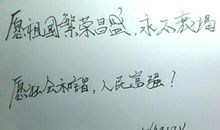 愿祖國繁荣昌盛,永不衰褐
愿社会和谐,人民富强!